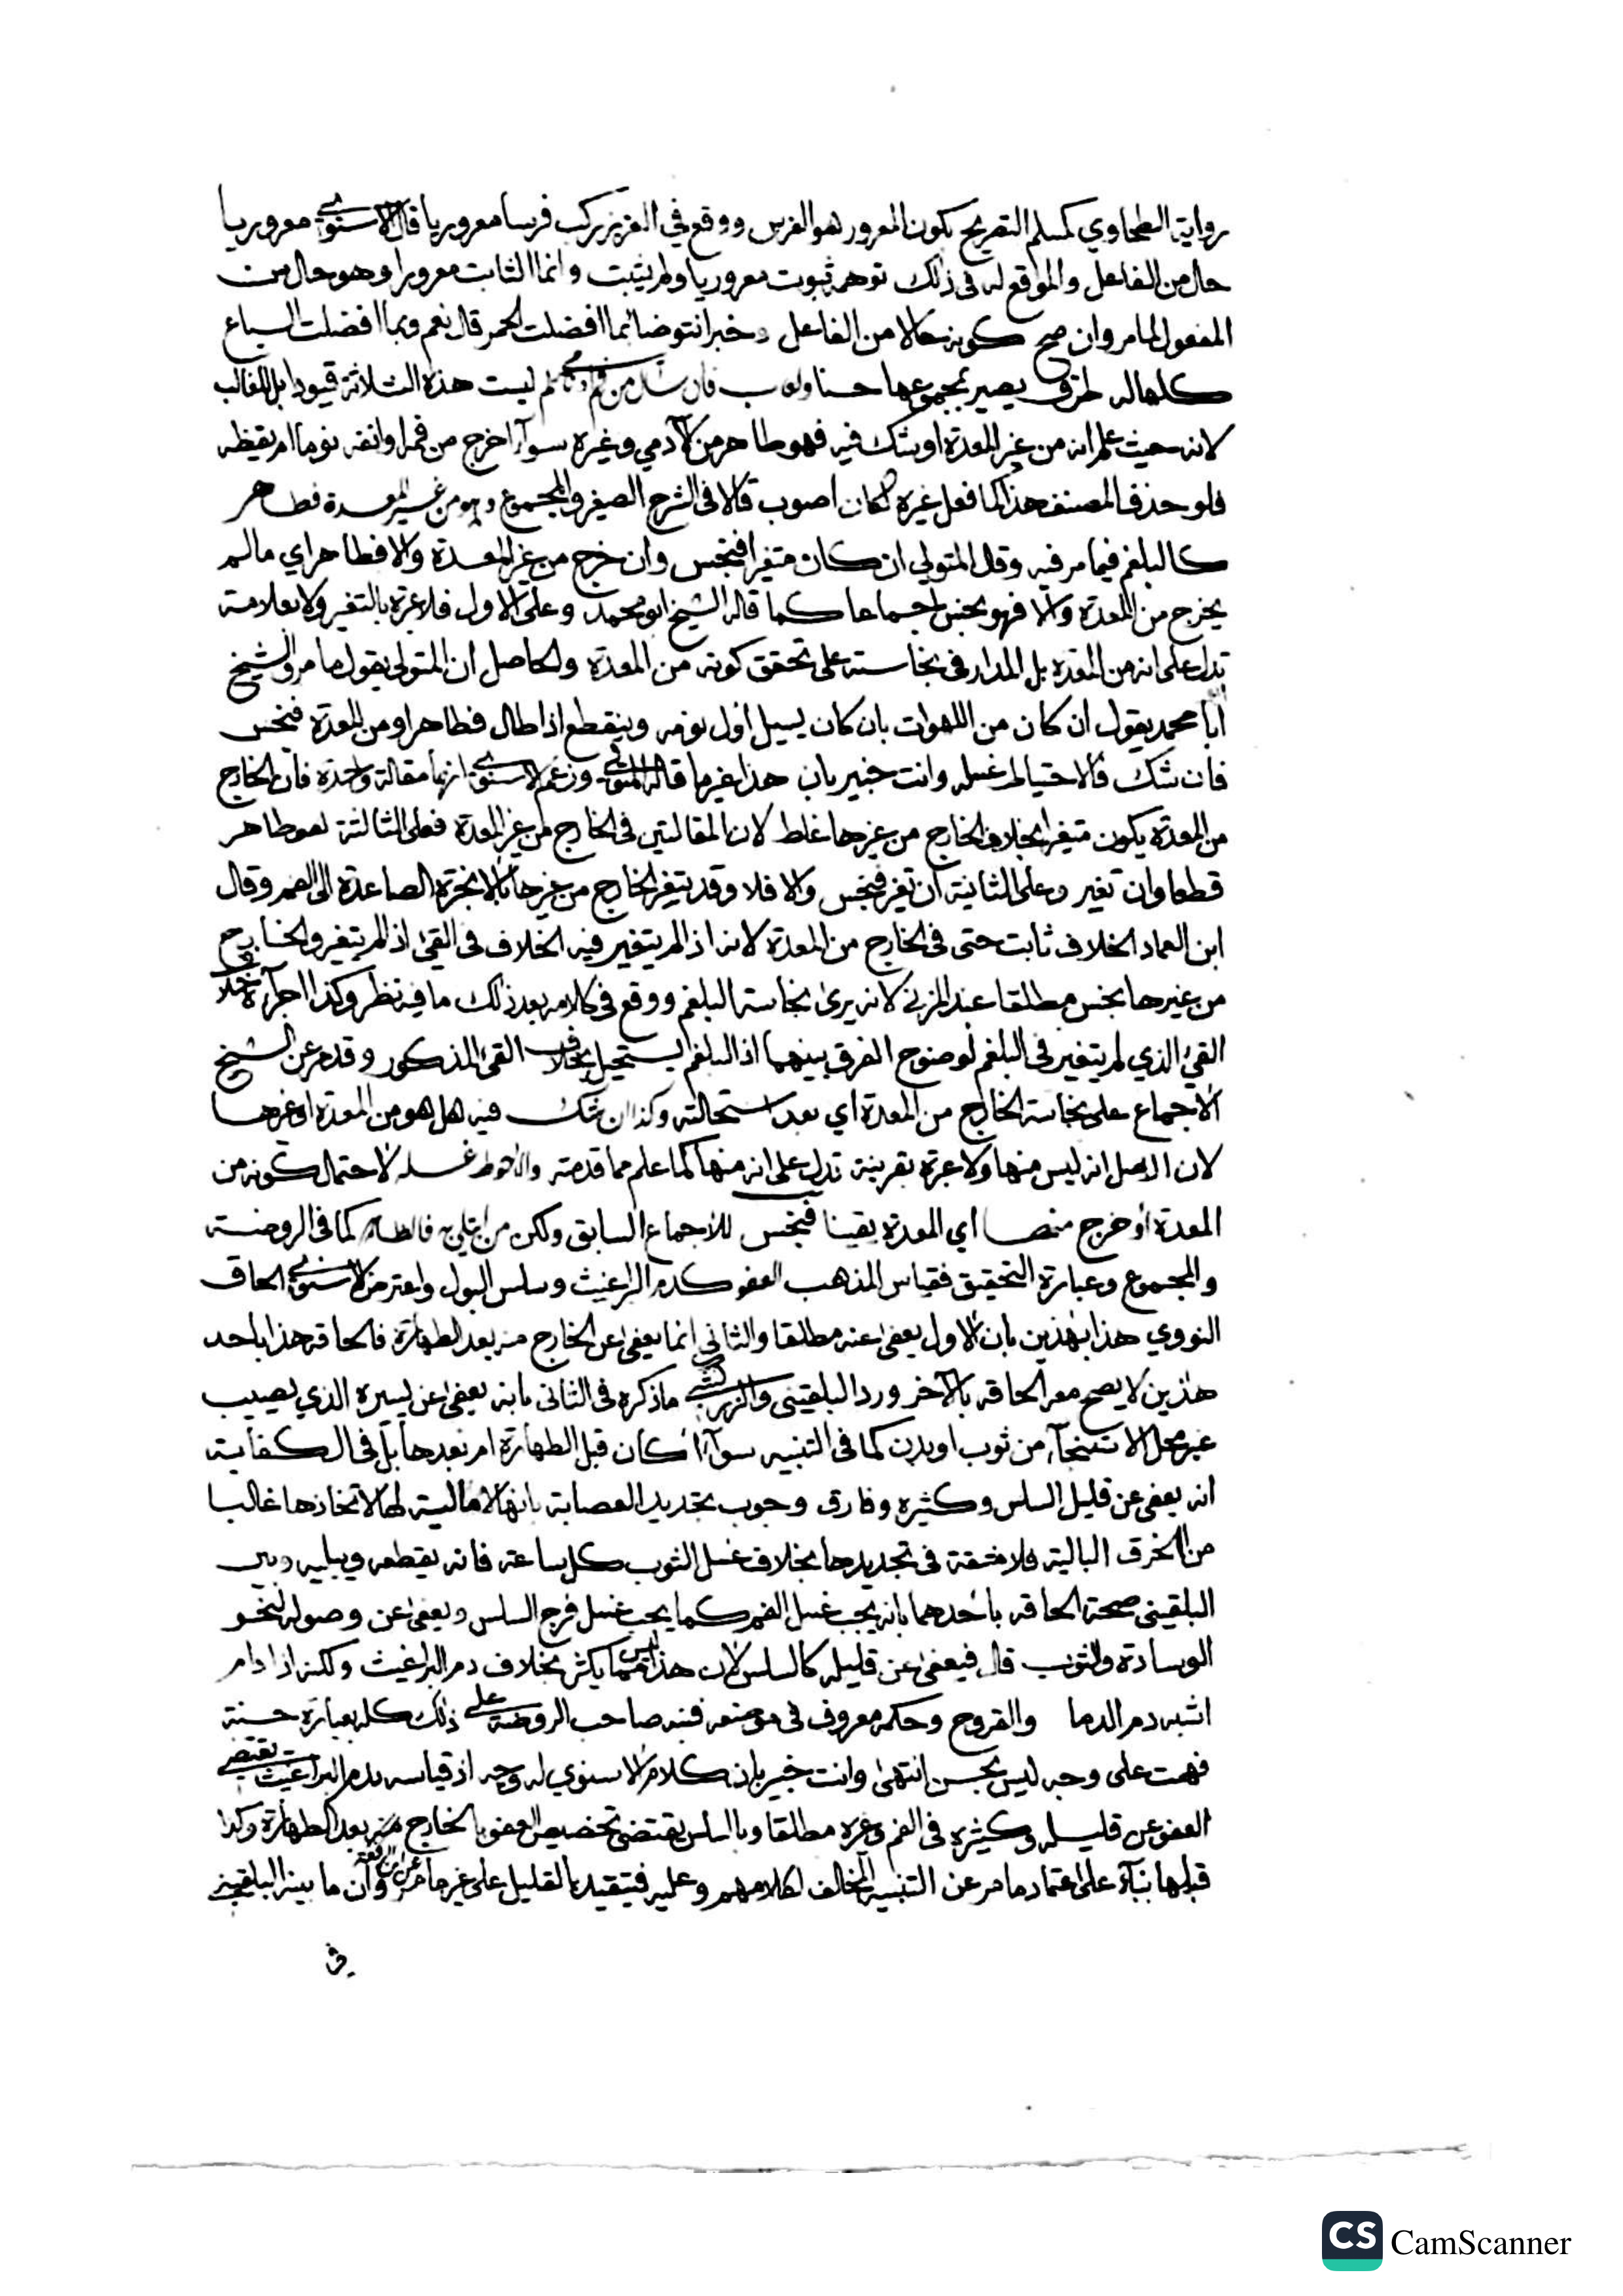 رواية الطحاوي كمسلم التصريح بكون المعرور هو الفرس ووقع في العزيز ركب فرسا معروريا قال الاسنوي معروريا
حال من الفاعل والموقع له في ذلك توهم ثبوت معروريا ولم يثبت وانما الثابت معرورا وهو حال من
المفعول لما مر وان صح كونه حالا من الفاعل وخبر انتوضا بما افضلت الحمر قال نعم وبما افضلت السباع
كلها له طرق يصير بمجموعها حسنا ولعاب فان سال من فم نائم ليست هذه الثلاثة قيودا بل للغالب
لانه حيث علم انه من غير المعدة او شك فيه فهو طاهر من الآدمي وغيره سوآء اخرج من فمه او انفه نوما ام يقظه
فلو حذف المصنف هذا كما فعل غيره لكان اصوب قالا في الشرح الصغير والمجموع وهو من غير المعدة فطاهر
كالبلغم فيما مر فيه وقال المتولي ان كان متغيرا فنجس وان خرج من غير المعدة والا فطاهر اي ما لم
يخرج من المعدة والا فهو نجس اجماعا كما قاله الشيخ ابو محمد وعلى الاول فلا عبرة بالتغير ولا بعلامة
تدل على انه من المعدة بل المدار في نجاسته على تحقق كونه من المعدة والحاصل ان المتولي يقول ما مر والشيخ
ابا محمد يقول ان كان من اللهوات بان كان يسيل اول نومه وينقطع اذا طال فطاهر او من المعدة فنجس
فان شك فالاحتياط غسله وانت خبير بان هذا غير ما قاله المتولي وزعم الاسنوي انهما مقالة واحدة فان الخارج
من المعدة يكون متغيرا بخلاف الخارج من غيرها غلط لان المقالتين في الخارج من غير المعدة فعلى الثالثة هو طاهر
قطعا وان تغير وعلى الثانية ان تغير فنجس والا فلا وقد يتغير الخارج من غيرها بالابخرة الصاعدة الى الفم وقال
ابن العماد الخلاف ثابت حتى في الخارج من المعدة لانه اذا لم يتغير فيه الخلاف في القئ اذا لم يتغير والخارج
من غيرها نجس مطلقا عند المزني لانه يرى نجاسة البلغم ووقع في كلامه بعد ذلك ما فيه نظر وكذا اجرآؤه خلاف
القئ الذي لم يتغير في البلغم لوضوح الفرق بينهما اذ البلغم يستحيل بخلاف القئ المذكور وقد مر عن الشيخ
الاجماع على نجاسة الخارج من المعدة اي بعد استحالته وكذا ان شك فيه هل هو من المعدة او غيرها
لان الاصل انه ليس منها ولا عبرة بقرينة تدل على انه منها كما علم مما قدمته والاحوط غسله لاحتمال كونه من
المعدة او خرج منها اي المعدة يقينا فنجس للاجماع السابق ولكن من ابتلي به فالظاهر كما في الروضة
والمجموع وعبارة التحقيق فقياس المذهب العفو كدم البراغيث وسلس البول واعترض الاسنوي الحاق
النووي هذا بهذين بان الاول يعفى عنه مطلقا والثاني انما يعفى عن الخارج منه بعد الطهارة فالحاقه هذا باحد
هاذين لا يصح مع الحاقه بالآخر ورد البلقيني والزركشي ما ذكره في الثاني بانه يعفى عن يسيره الذي يصيب
غير محل الاستنجآء من ثوب او بدن كما في التنبيه سوآء اكان قبل الطهارة ام بعدها بل في الكفاية
انه يعفى عن قليل السلس وكثيره وفارق وجوب تجديد العصابة بانها لا مالية لها لاتخاذها غالبا
من الخرق البالية فلا مشقة في تجديدها بخلاف غسل الثوب كل ساعة فانه يقطعه ويبليه وبين
البلقيني صحة الحاقه باحدهما بانه يجب غسل الفم كما يجب غسل فرج السلس ويعفى عن وصوله لنحو
الوسادة والثوب قال فيعفى عن قليله كالسلس لان هذا ليس مما يكثر بخلاف دم البراغيث ولكنه اذا دام
اشبه دم الدما والقروح وحكمه معروف في موضعه فنبه صاحب الروضة على ذلك كله بعبارة حسنة
فهمت على وجه ليس بحسن انتهى وانت خبير بان كلام الاسنوي له وجه اذ قياسه بدم البراغيث يقتضي
العفو عن قليله وكثيره في الفم وغيره مطلقا وبالسلس يقتضي تخصيص العفو بالخارج منه بعد الطهارة وكذا
قبلها بنآء على اعتماد ما مر عن التنبيه المخالف لكلامهم وعليه فيتقيد بالقليل على غير ما مر عن ابن الرفعة وان ما بينه البلقيني
في
CS CamScanner